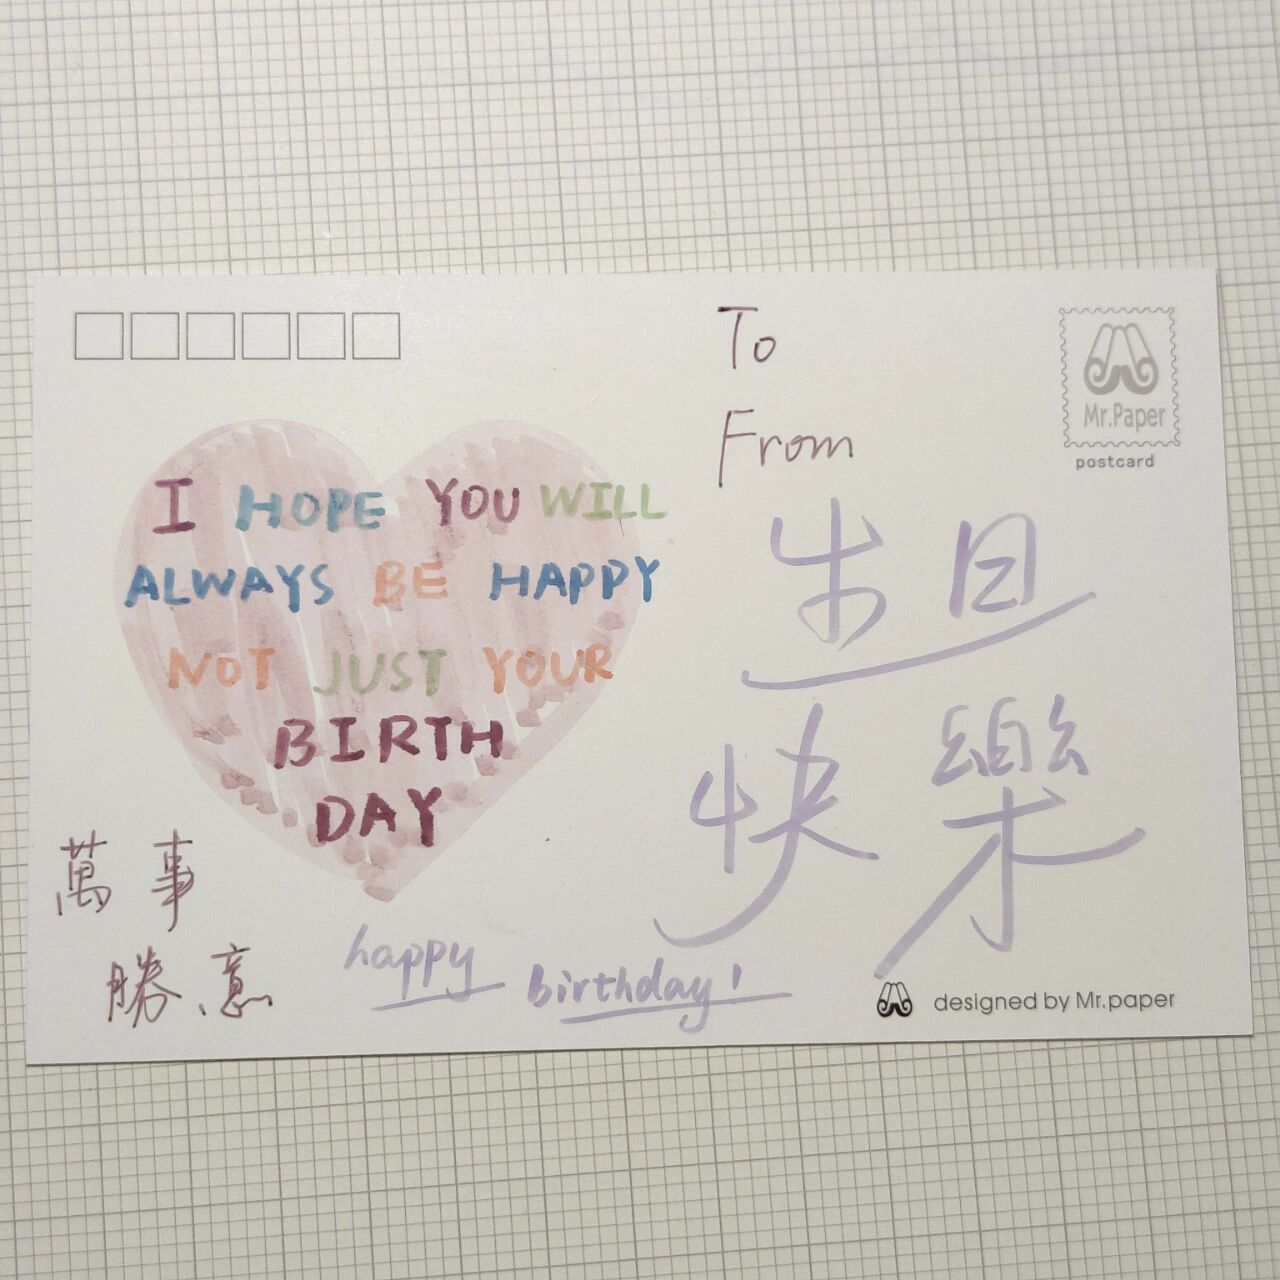 To
From
Mr.Paper
postcard
I HOPE YOU WILL
ALWAYS BE HAPPY
NOT JUST YOUR
BIRTH
DAY
生日
快樂
萬事
勝意
happy birthday!
designed by Mr.paper